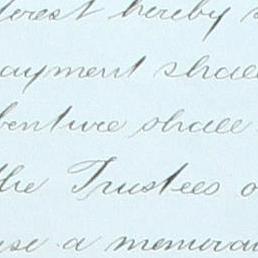 terest hereby s
ayment shall
benture shall
the Trustees o
use a memoran